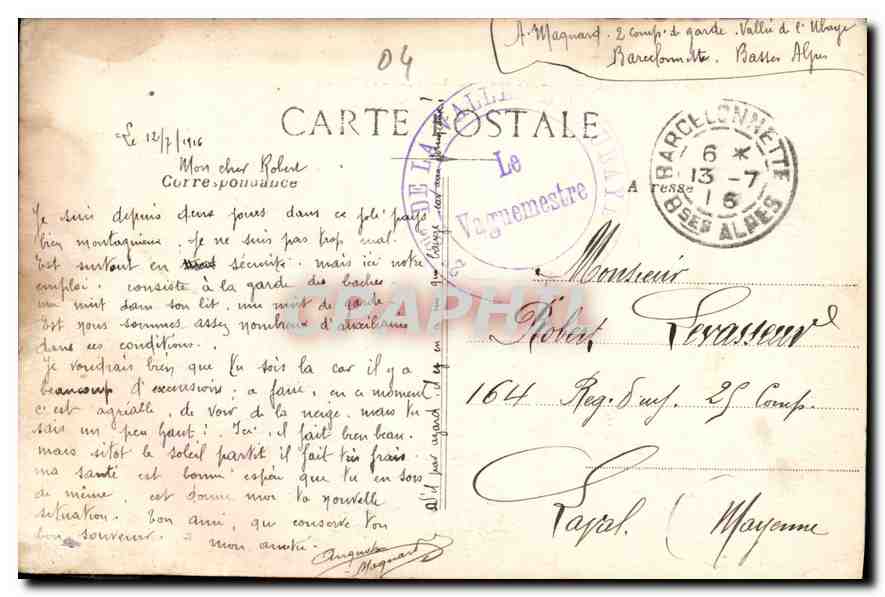 A. Magnard. 2 comp. d garde. Vallée de l'Ubaye
Barcelonnette. Basses Alpes
04
CARTE POSTALE
Le 12/7/1916
Mon cher Robert
Correspondance
Adresse
DE LA VALLEE UBAYE
Le
Vaguemestre
BARCELONNETTE
6 *
13 -7
16
BSES ALPES
Je suis depuis deux jours dans ce joli pays
bien montagneux. Je ne suis pas trop mal.
Est surtout en sécurité. mais ici notre
emploi. consiste à la garde des boches
une nuit dans son lit. une nuit de garde
Est nous sommes assez nombreux d'auxiliaires
dans ces conditions.
Je voudrais bien que tu sois la car il y a
beaucoup d'excursions. a faire, en ce moment
c'est agréable, de voir de la neige. mais tu
sais un peu haut! Ici. il fait bien beau.
mais sitot le soleil partit il fait très frais.
ma santé est bonne espère que tu en sois
de même. est donne moi ta nouvelle
situation. Ton ami, qui conserve ton
bon souvenir.
mon amitié.
Magnard
Monsieur
Robert Levasseur
164 Reg. d'inf. 25 Comp.
Laval. (Mayenne
CPAPHIL